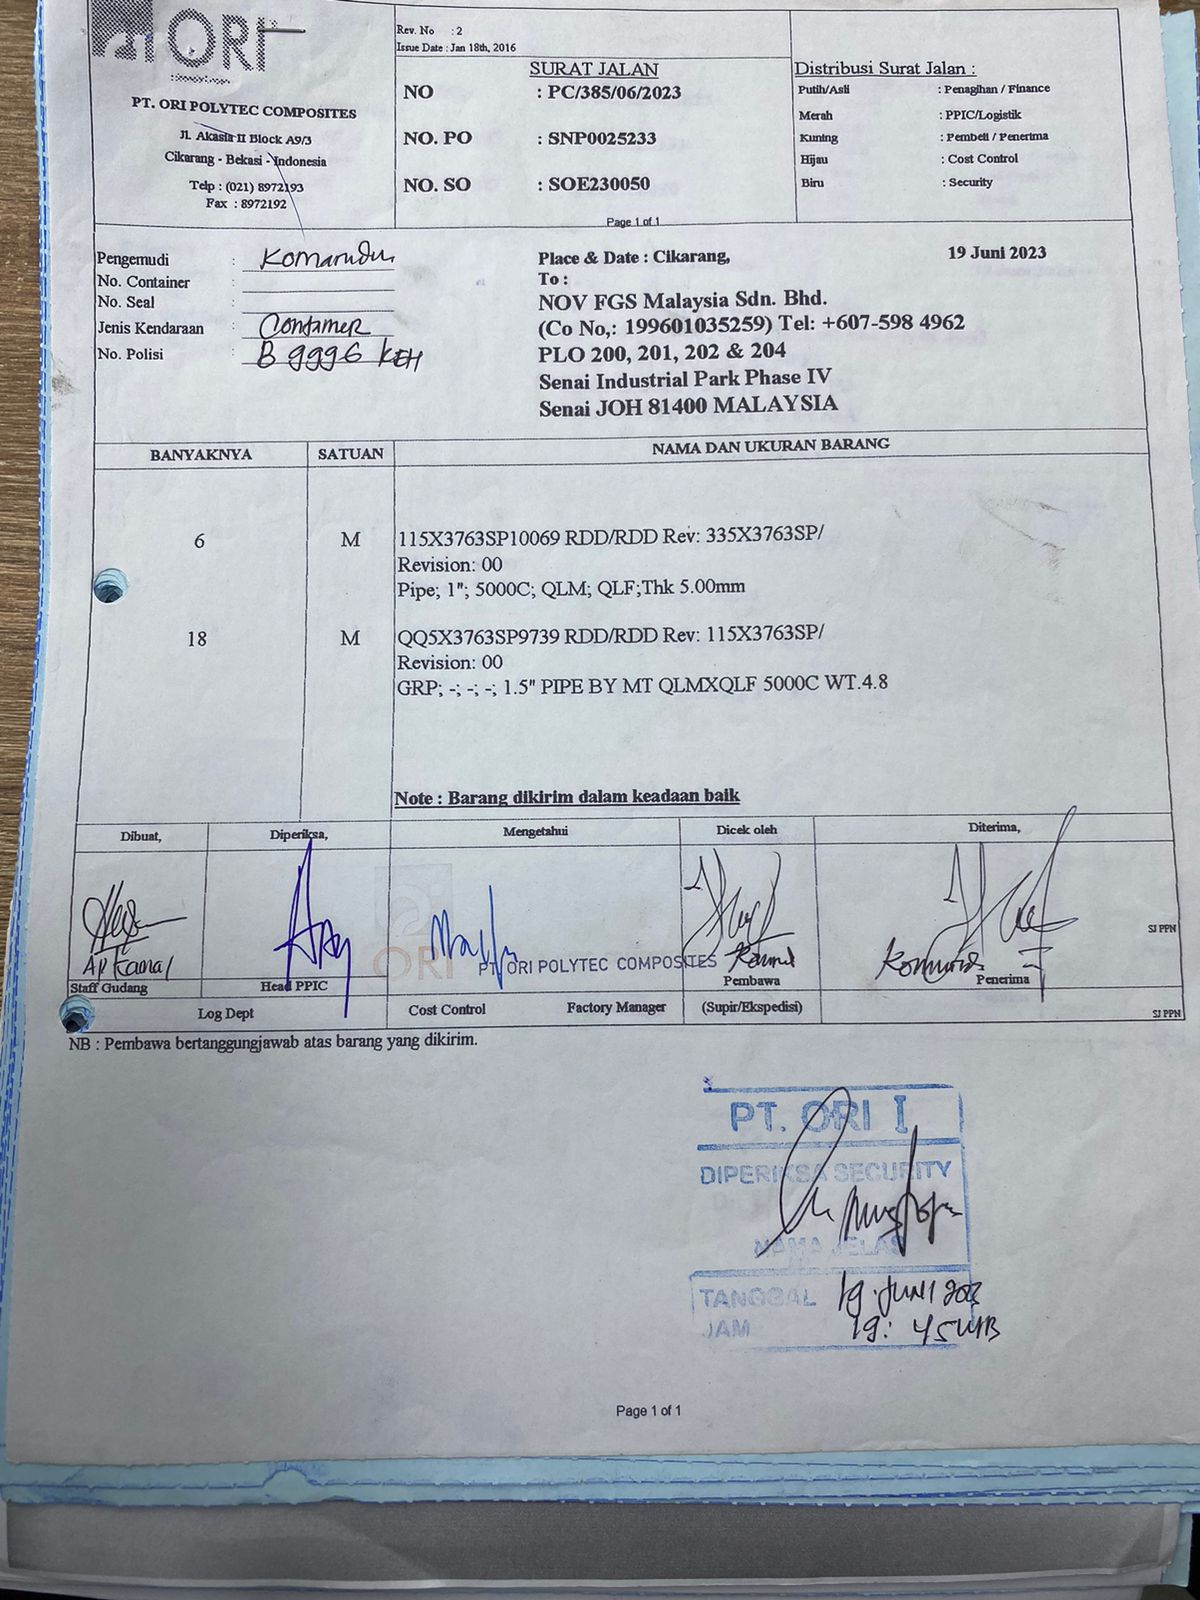 ORI
PT. ORI POLYTEC COMPOSITES
Jl. Akasia II Block A9/3
Cikarang - Bekasi - Indonesia
Telp : (021) 8972193
Fax : 8972192
Rev. No : 2
Issue Date : Jan 18th, 2016
SURAT JALAN
NO : PC/385/06/2023
NO. PO : SNP0025233
NO. SO : SOE230050
Page 1 of 1
Distribusi Surat Jalan :
Putih/Asli : Penagihan / Finance
Merah : PPIC/Logistik
Kuning : Pembeli / Penerima
Hijau : Cost Control
Biru : Security
Pengemudi : Komarudin
No. Container :
No. Seal :
Jenis Kendaraan : Container
No. Polisi : B 9996 KEH
Place & Date : Cikarang, 19 Juni 2023
To :
NOV FGS Malaysia Sdn. Bhd.
(Co No,: 199601035259) Tel: +607-598 4962
PLO 200, 201, 202 & 204
Senai Industrial Park Phase IV
Senai JOH 81400 MALAYSIA
BANYAKNYA SATUAN NAMA DAN UKURAN BARANG
6 M 115X3763SP10069 RDD/RDD Rev: 335X3763SP/
Revision: 00
Pipe; 1"; 5000C; QLM; QLF;Thk 5.00mm
18 M QQ5X3763SP9739 RDD/RDD Rev: 115X3763SP/
Revision: 00
GRP; -; -; -; 1.5" PIPE BY MT QLMXQLF 5000C WT.4.8
Note : Barang dikirim dalam keadaan baik
Dibuat, Diperiksa, Mengetahui Dicek oleh Diterima,
SJ PPN
ORI PT ORI POLYTEC COMPOSITES
Staff Gudang Head PPIC Pembawa Penerima
Log Dept Cost Control Factory Manager (Supir/Ekspedisi)
SJ PPN
NB : Pembawa bertanggungjawab atas barang yang dikirim.
PT. ORI I
DIPERIKSA SECURITY
NAMA JELAS
TANGGAL 19 JUNI 2023
JAM 19: 45 WIB
Page 1 of 1